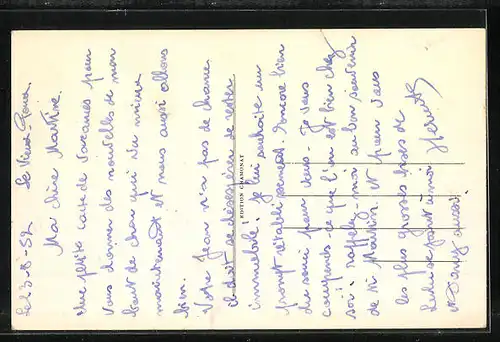 Le 3-8-52 Le Vieux-
Ma chère Martine.
Une petite carte de vacances pour
vous donner des nouvelles de mon
bout de chou qui va mieux
maintenant et nous aussi allons
bien.
Votre Jean n'a pas de chance
il doit se désespérer de rester
immobile. Je lui souhaite un
prompt rétablissement. Encore bien
du souci pour vous. Je vous
comprends ce que l'on est bien chez
soi! rappelez-moi au bon souvenir
de Mr Martin. et pour vous
les plus grosses bises de
se joint à moi
et Dany aussi.
EDITION CHAMONAT